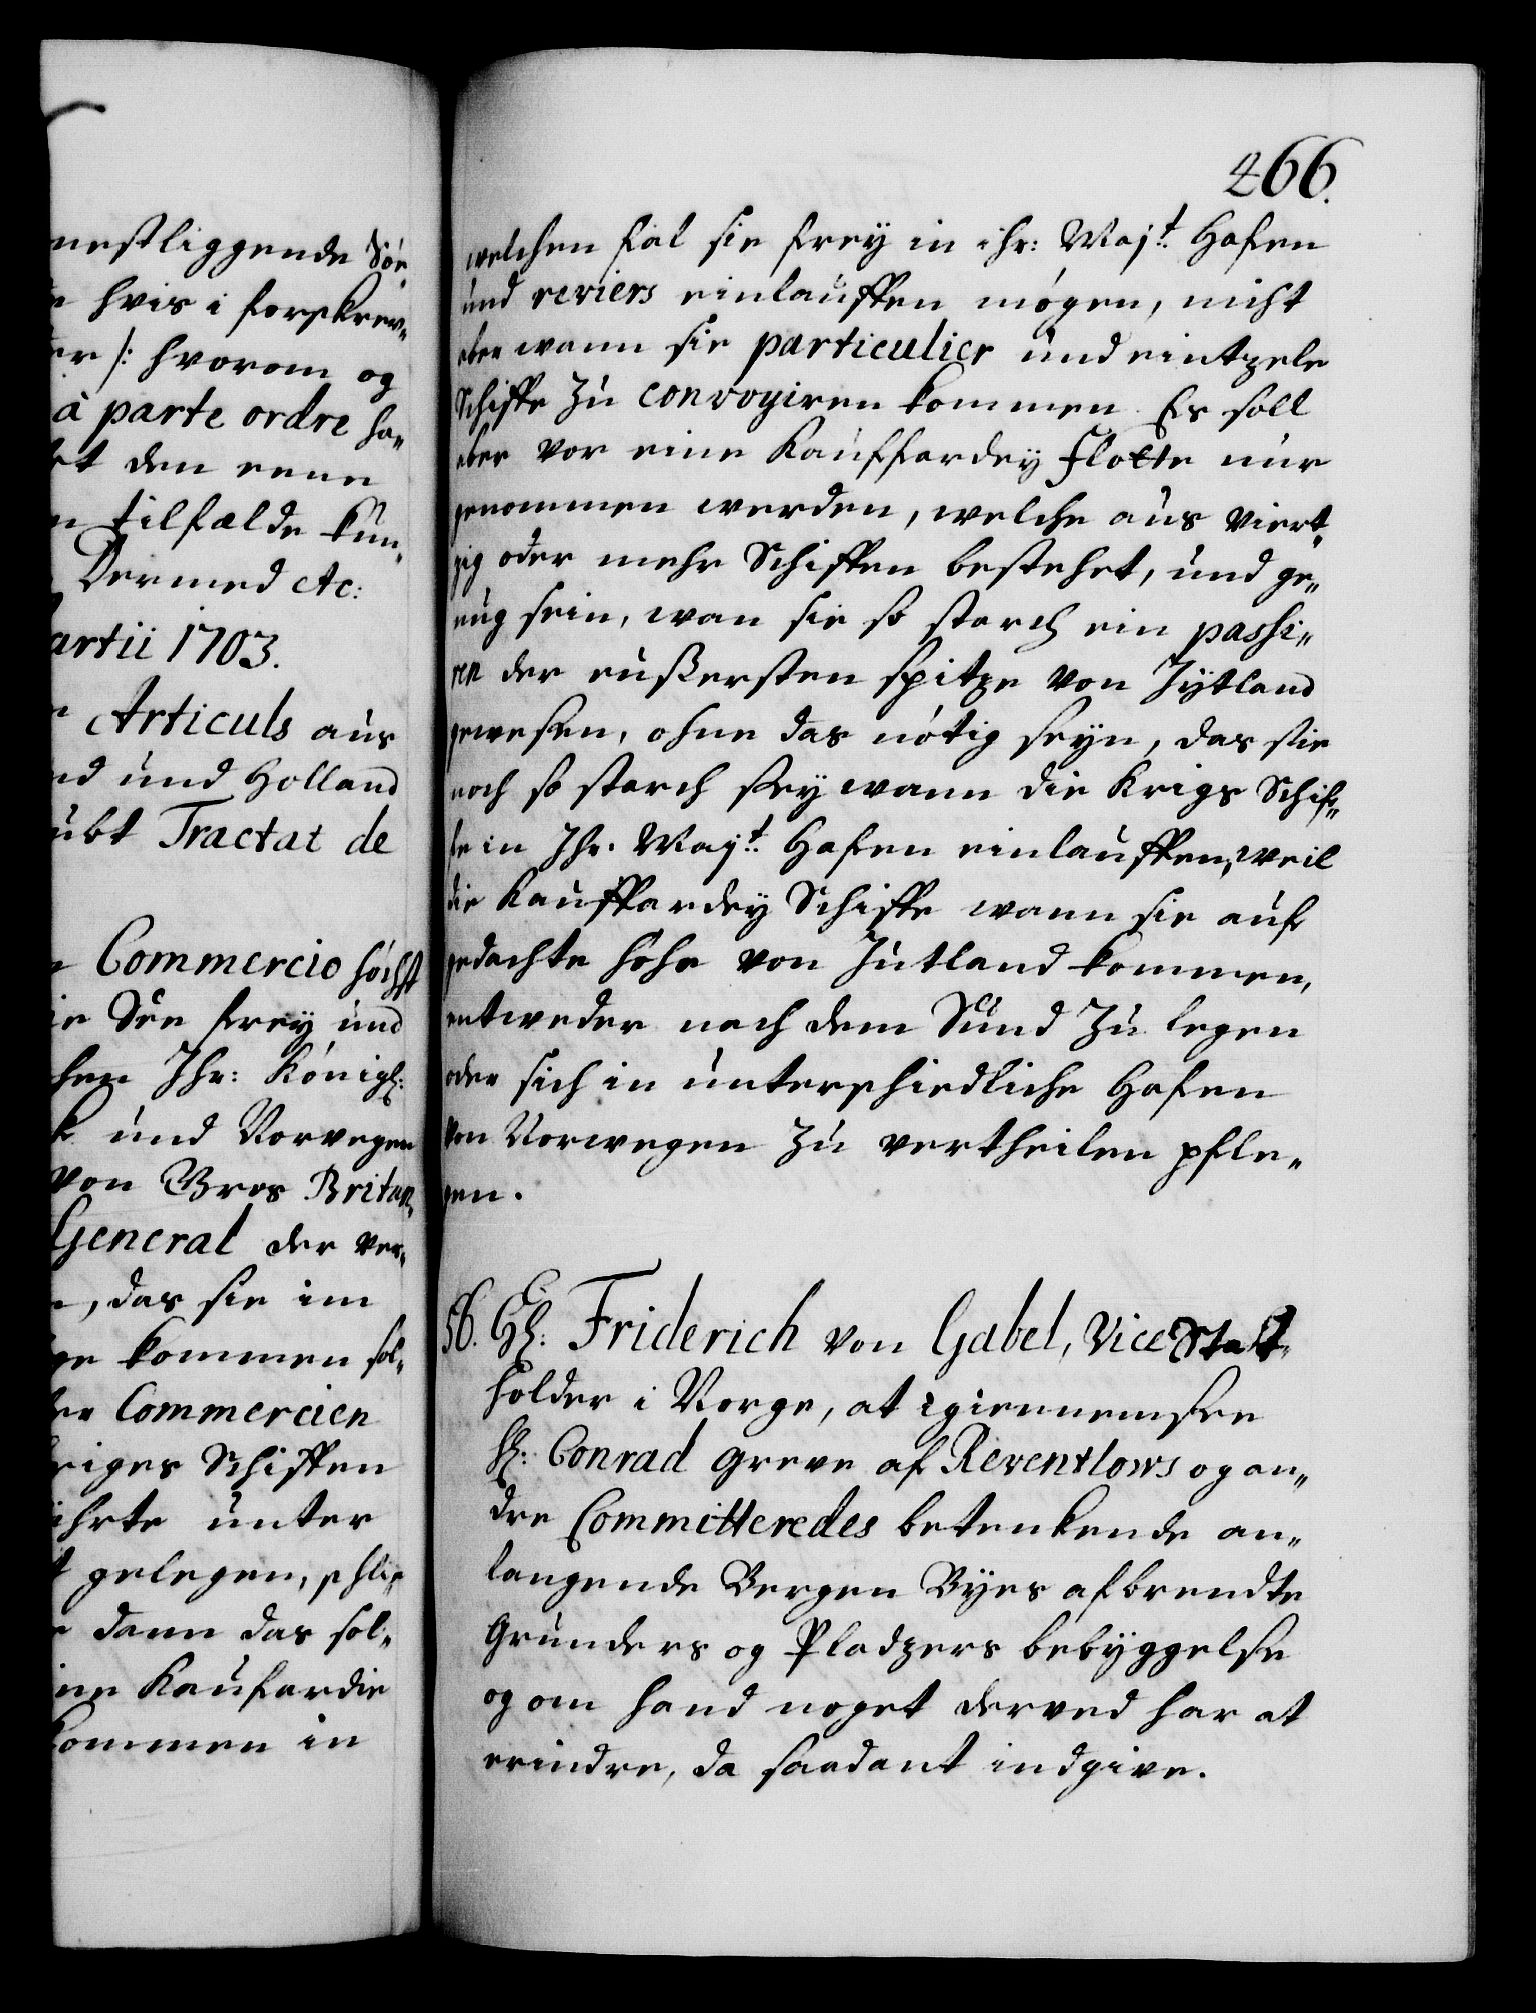 nestliggende Søe
hvis i forskrev„
er /: hvorom og
à parte ordre ha„
et den eene
tilfælde kun„
Dermed etc:
artii 1703.
Articuls aus
nd und Holland
ubt Tractat de
Commercio höchst
ie See frey und
hen Ihr: Königl:
k und Norwegen
von Gros Britan„
General der ver„
, das sie im
ge kommen sol„
der Commercien
riges Schiffen
ührte unter
t gelegen, schli„
dann das sol„
ine Kaufardie
kommen in
266.
welchen fal sie frey in ihr: Mayt. Hafen
und reviers einlauffen mögen, nicht
aber wann sie particulier und eintzele
Schiffe zu convoyiren kommen. Es soll
aber vor eine Kauffardey Flotte nur
genommen werden, welche aus viert„
zig oder mehr Schiffen bestehet, und ge„
nug sein, wan sie so starch ein passi„
ren der eußersten spitze von Jytland
gewesen, ohne das nötig seyn, das sie
noch so starch sey wann die Krigs Schif„
fe in Ihr. Mayt. Hafen einlauffen, weil
die Kauffardey Schiffe wann sie auf
gedachte höhe von Jutland kommen,
entweder nach dem Sund zu legen
oder sich in unterschiedliche Hafen
von Norwegen zu vertheilen pfle„
gen.
56. Hl: Friderich von Gabel, Vice Stat„
holder i Norge, at igiennemsee
Hl: Conrad Greve af Reventlows og an„
dre Committeredes betenkende an„
langende Bergen Byes afbrendte
Grunders og Pladzers bebyggelse
og om hand noget derved har at
erindre, da saadant indgive.